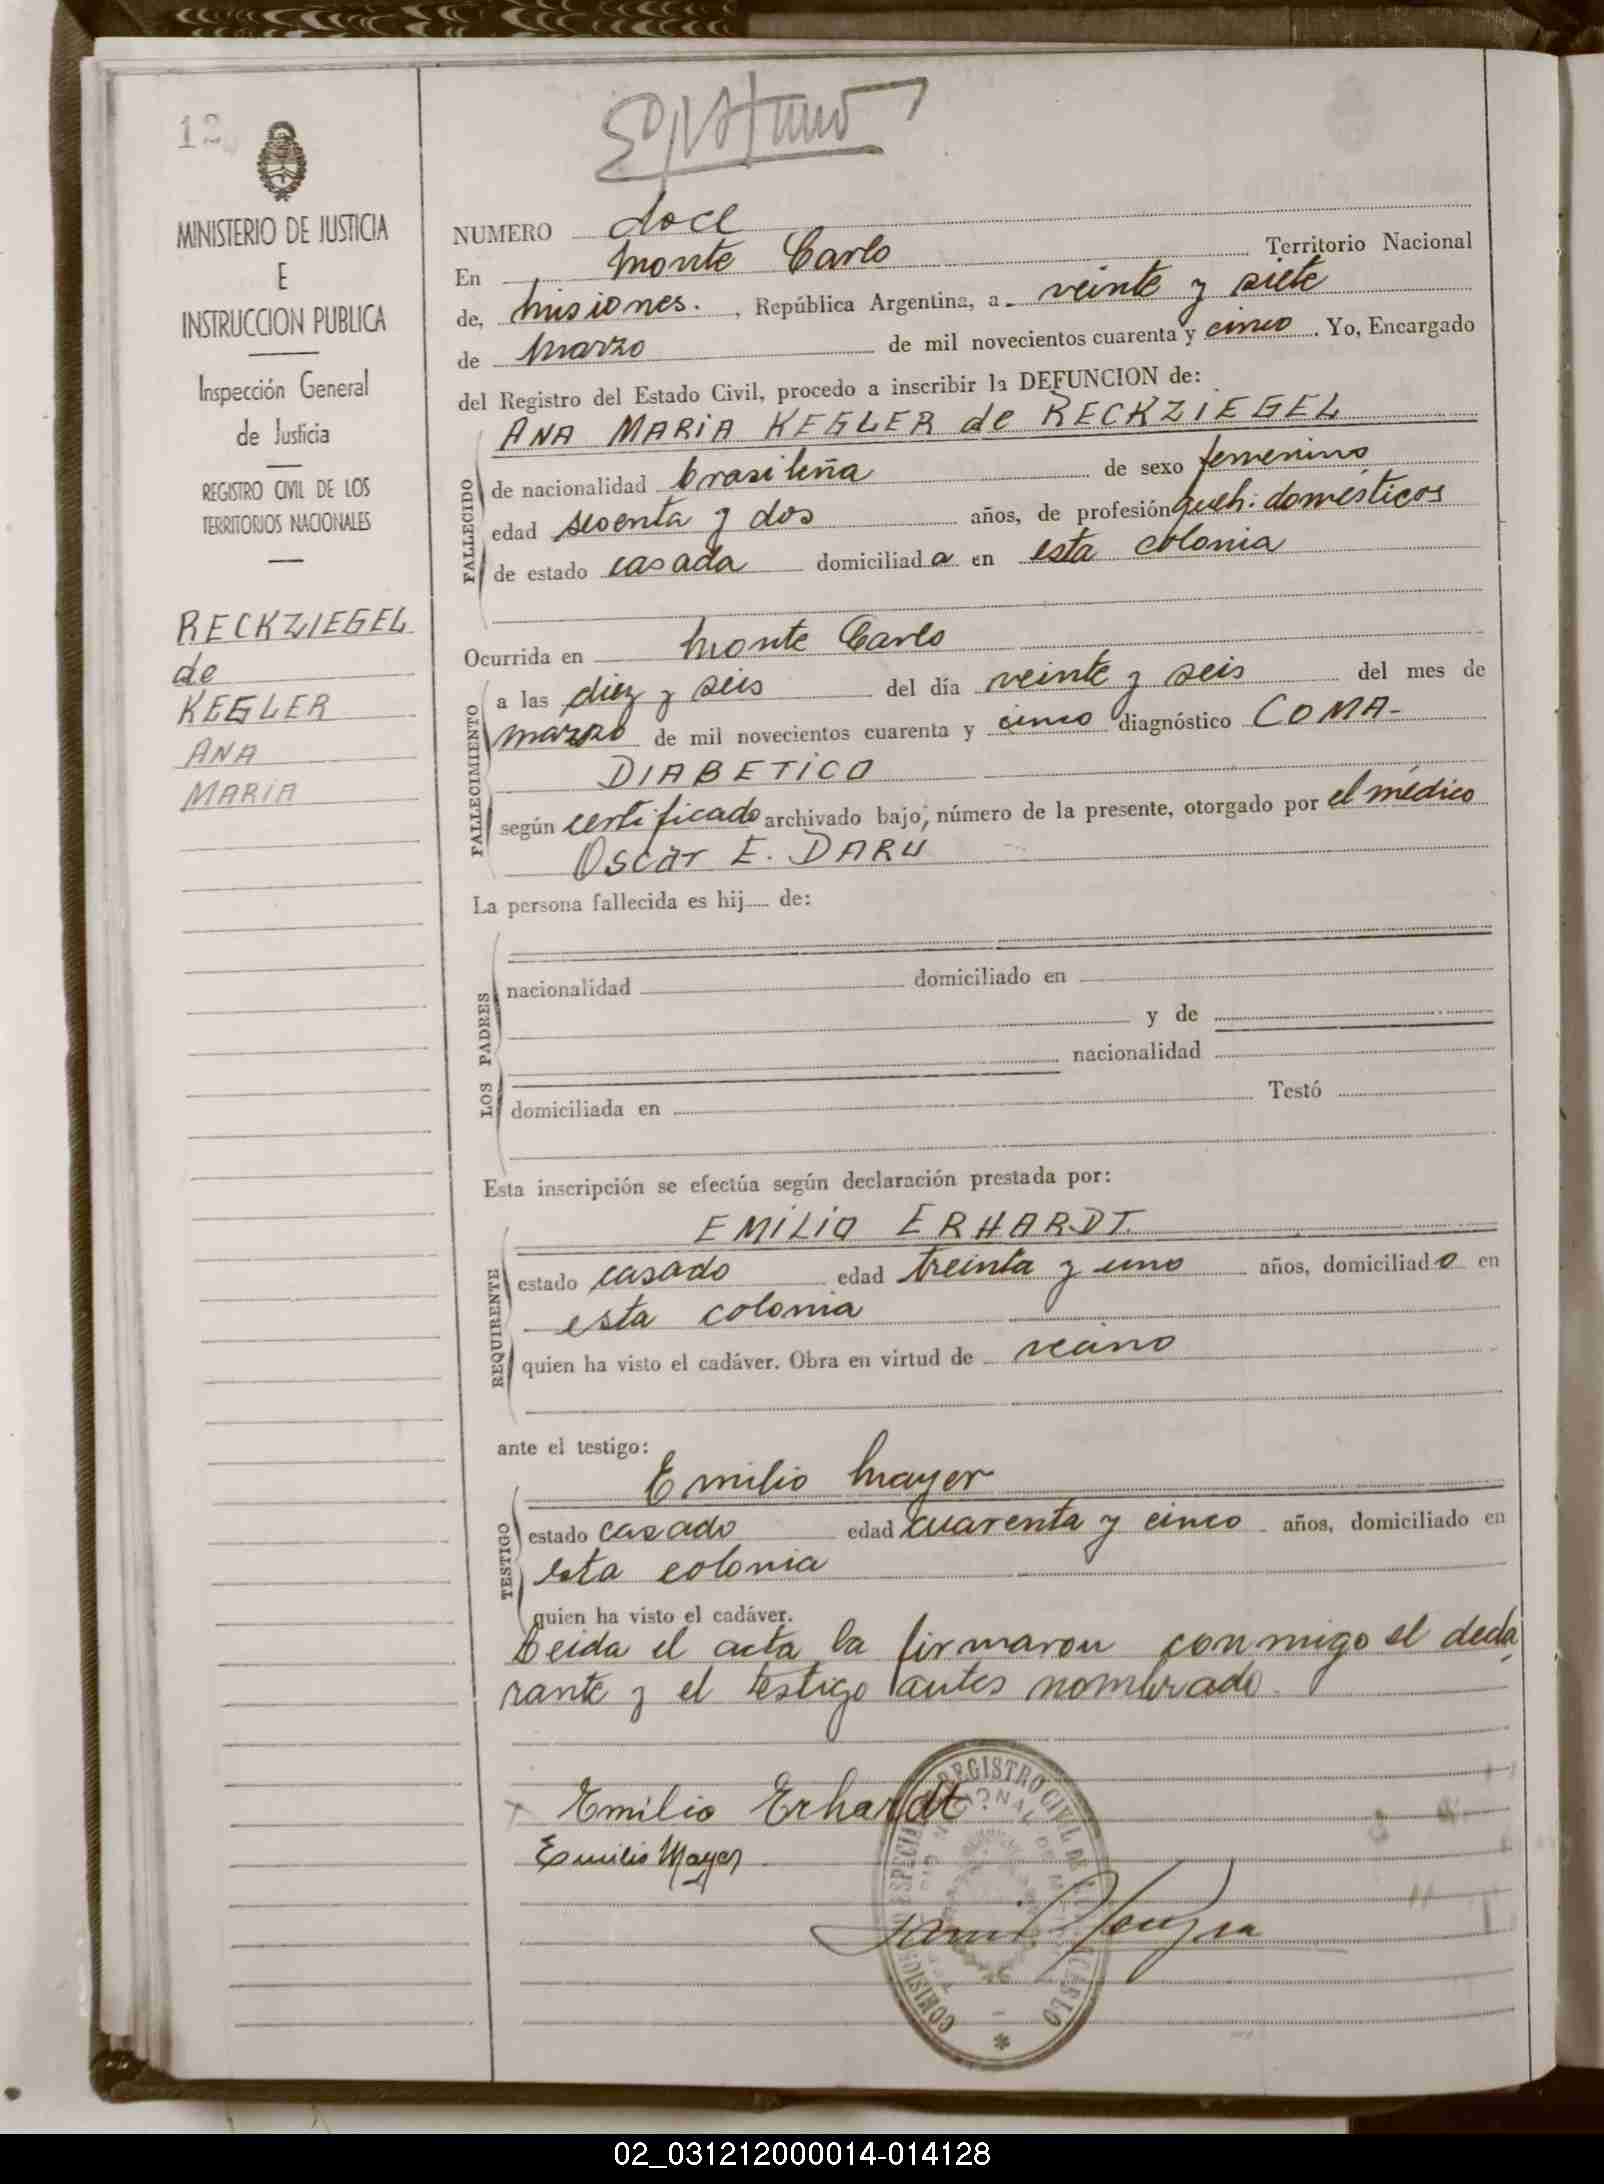 12
MINISTERIO DE JUSTICIA
E
INSTRUCCION PUBLICA
Inspección General
de Justicia
REGISTRO CIVIL DE LOS
TERRITORIOS NACIONALES
RECKZIEGEL
de
KEGLER
ANA
MARIA
NUMERO doce
En Monte Carlo Territorio Nacional
de, Misiones. , República Argentina, a veinte y siete
de Marzo de mil novecientos cuarenta y cinco . Yo, Encargado
del Registro del Estado Civil, procedo a inscribir la DEFUNCION de:
ANA MARIA KEGLER de RECKZIEGEL
FALLECIDO
de nacionalidad brasileña de sexo femenino
edad años, de profesión queh: domésticos
de estado casada domiciliada en esta colonia
Ocurrida en Monte Carlo
FALLECIMIENTO
a las diez y seis del día veinte y seis del mes de
marzo de mil novecientos cuarenta y cinco diagnóstico COMA-
DIABETICO
según certificado archivado bajo, número de la presente, otorgado por el médico
Oscar E. DARU
La persona fallecida es hij..... de:
LOS PADRES
nacionalidad domiciliado en
y de
nacionalidad
domiciliada en Testó
Esta inscripción se efectúa según declaración prestada por:
EMILIO ERHARDT
REQUIRENTE
estado casado edad treinta y uno años, domiciliado en
esta colonia
quien ha visto el cadáver. Obra en virtud de vecino
ante el testigo:
Emilio Mayer
TESTIGO
estado casado edad cuarenta y cinco años, domiciliado en
esta colonia
quien ha visto el cadáver.
Leida el acta la firmaron conmigo el decla
rante y el testigo antes nombrado.
Emilio Erhardt
Emilio Mayer
REGISTRO CIVIL DE
02_031212000014-014128